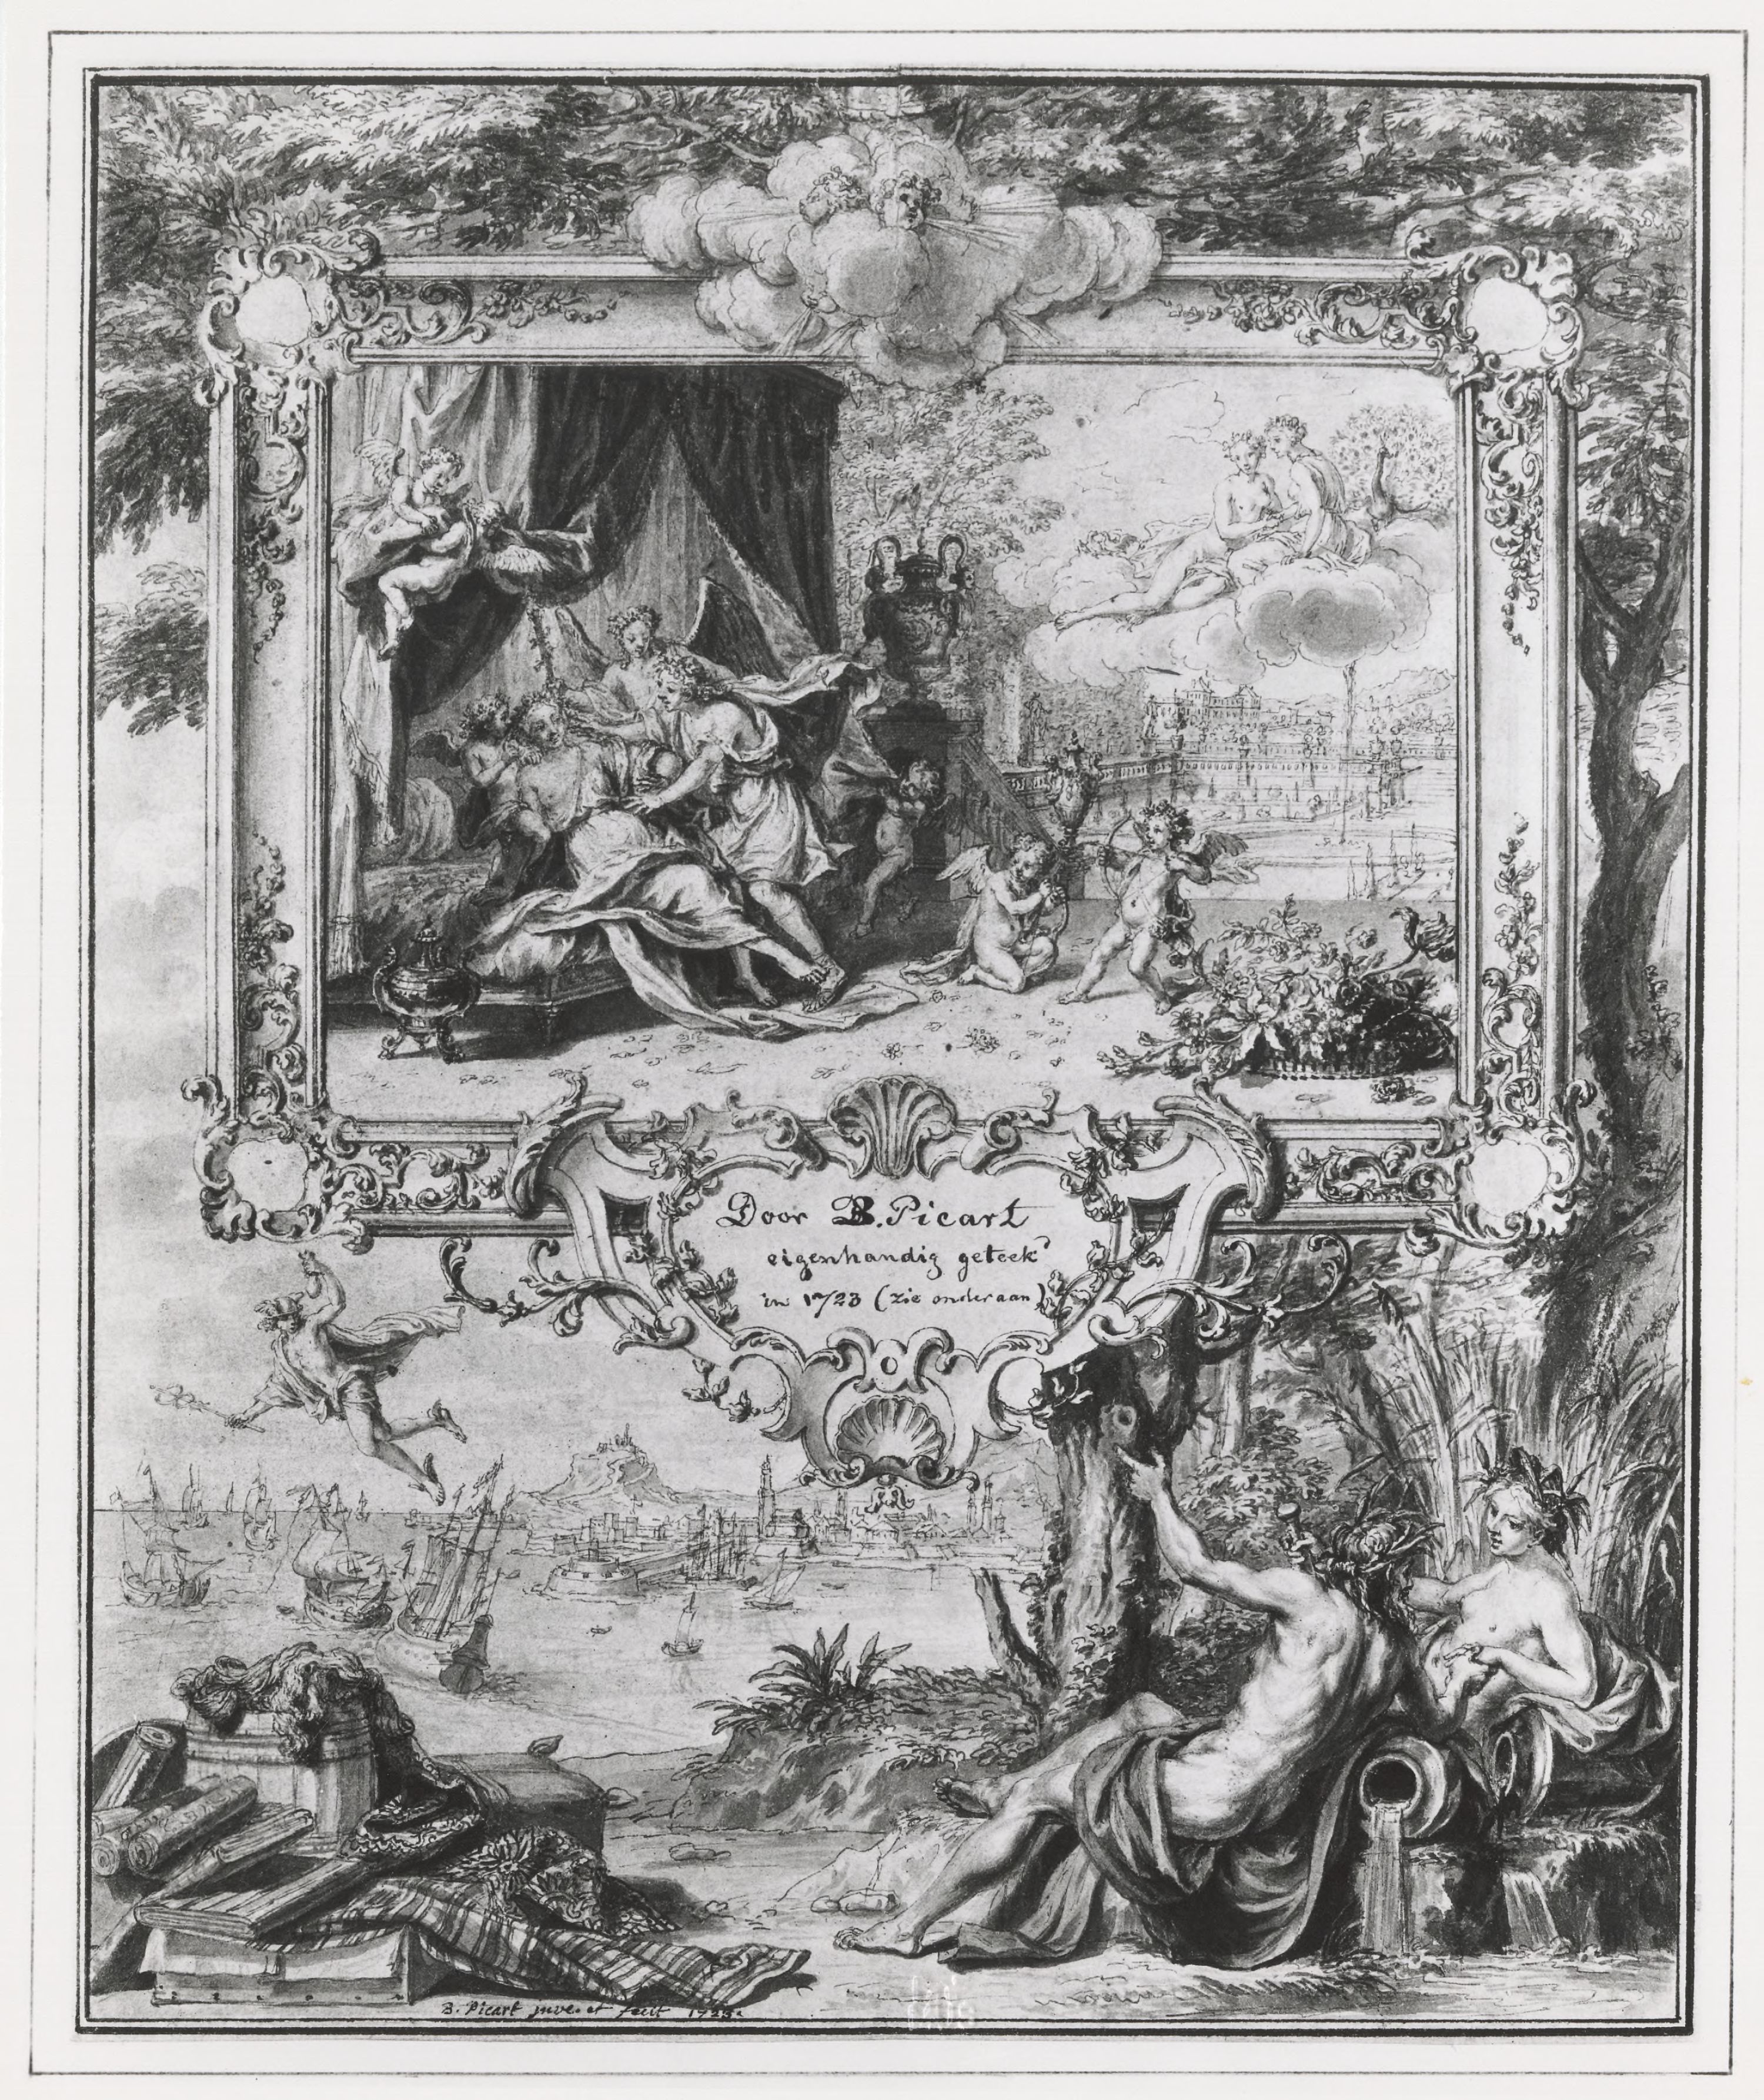 Door B. Picart
eigenhandig geteekd
in 1723 (zie onderaan)
B. Picart inve. et fecit 1723.